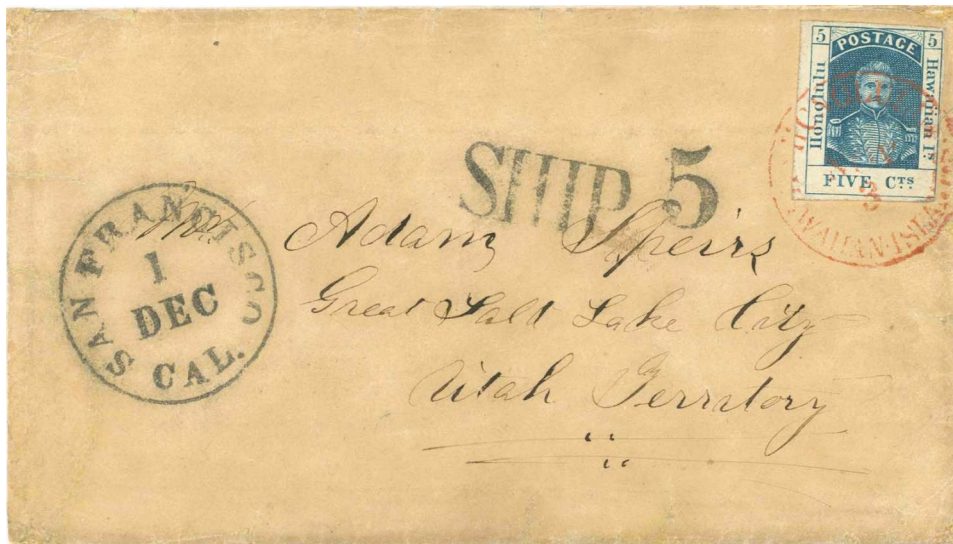 5 POSTAGE 5
Honolulu
Hawaiian Is.
FIVE CTS
HAWAIIAN·ISLANDS
SHIP 5
SAN FRANCISCO
1
DEC
CAL.
Adam Speirs
Great Salt Lake City
Utah Territory